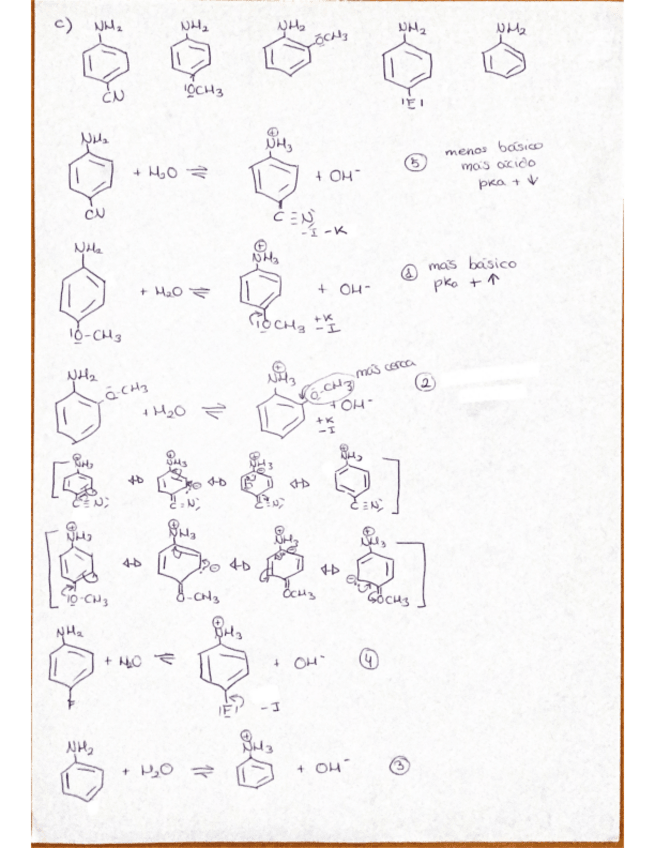 c) NH2 NH2 NH2 NH2 NH2
OCH3
CN IOCH3 IFI
NH2 + H2O ⇌ ⊕NH3 + OH- ⑤ menos básico
más ácido
pka + ↓
CN C≡N
-I -K
NH2 + H2O ⇌ ⊕NH3 + OH- ① más básico
pka + ↑
IO-CH3 IOCH3 +K
-I
más cerca
NH2 O-CH3 + H2O ⇌ ⊕NH3 O-CH3 + OH- ②
+K
-I
[⊕NH3 ↔ ⊕NH3 ↔ ⊕NH3 ↔ ⊕NH3]
C≡N C=N C≡N C≡N
[⊕NH3 ↔ ⊕NH3 ↔ ⊕NH3 ↔ ⊕NH3]
IO-CH3 O-CH3 OCH3 OCH3
NH2 + H2O ⇌ ⊕NH3 + OH- ④
F IFI -I
NH2 + H2O ⇌ ⊕NH3 + OH- ③